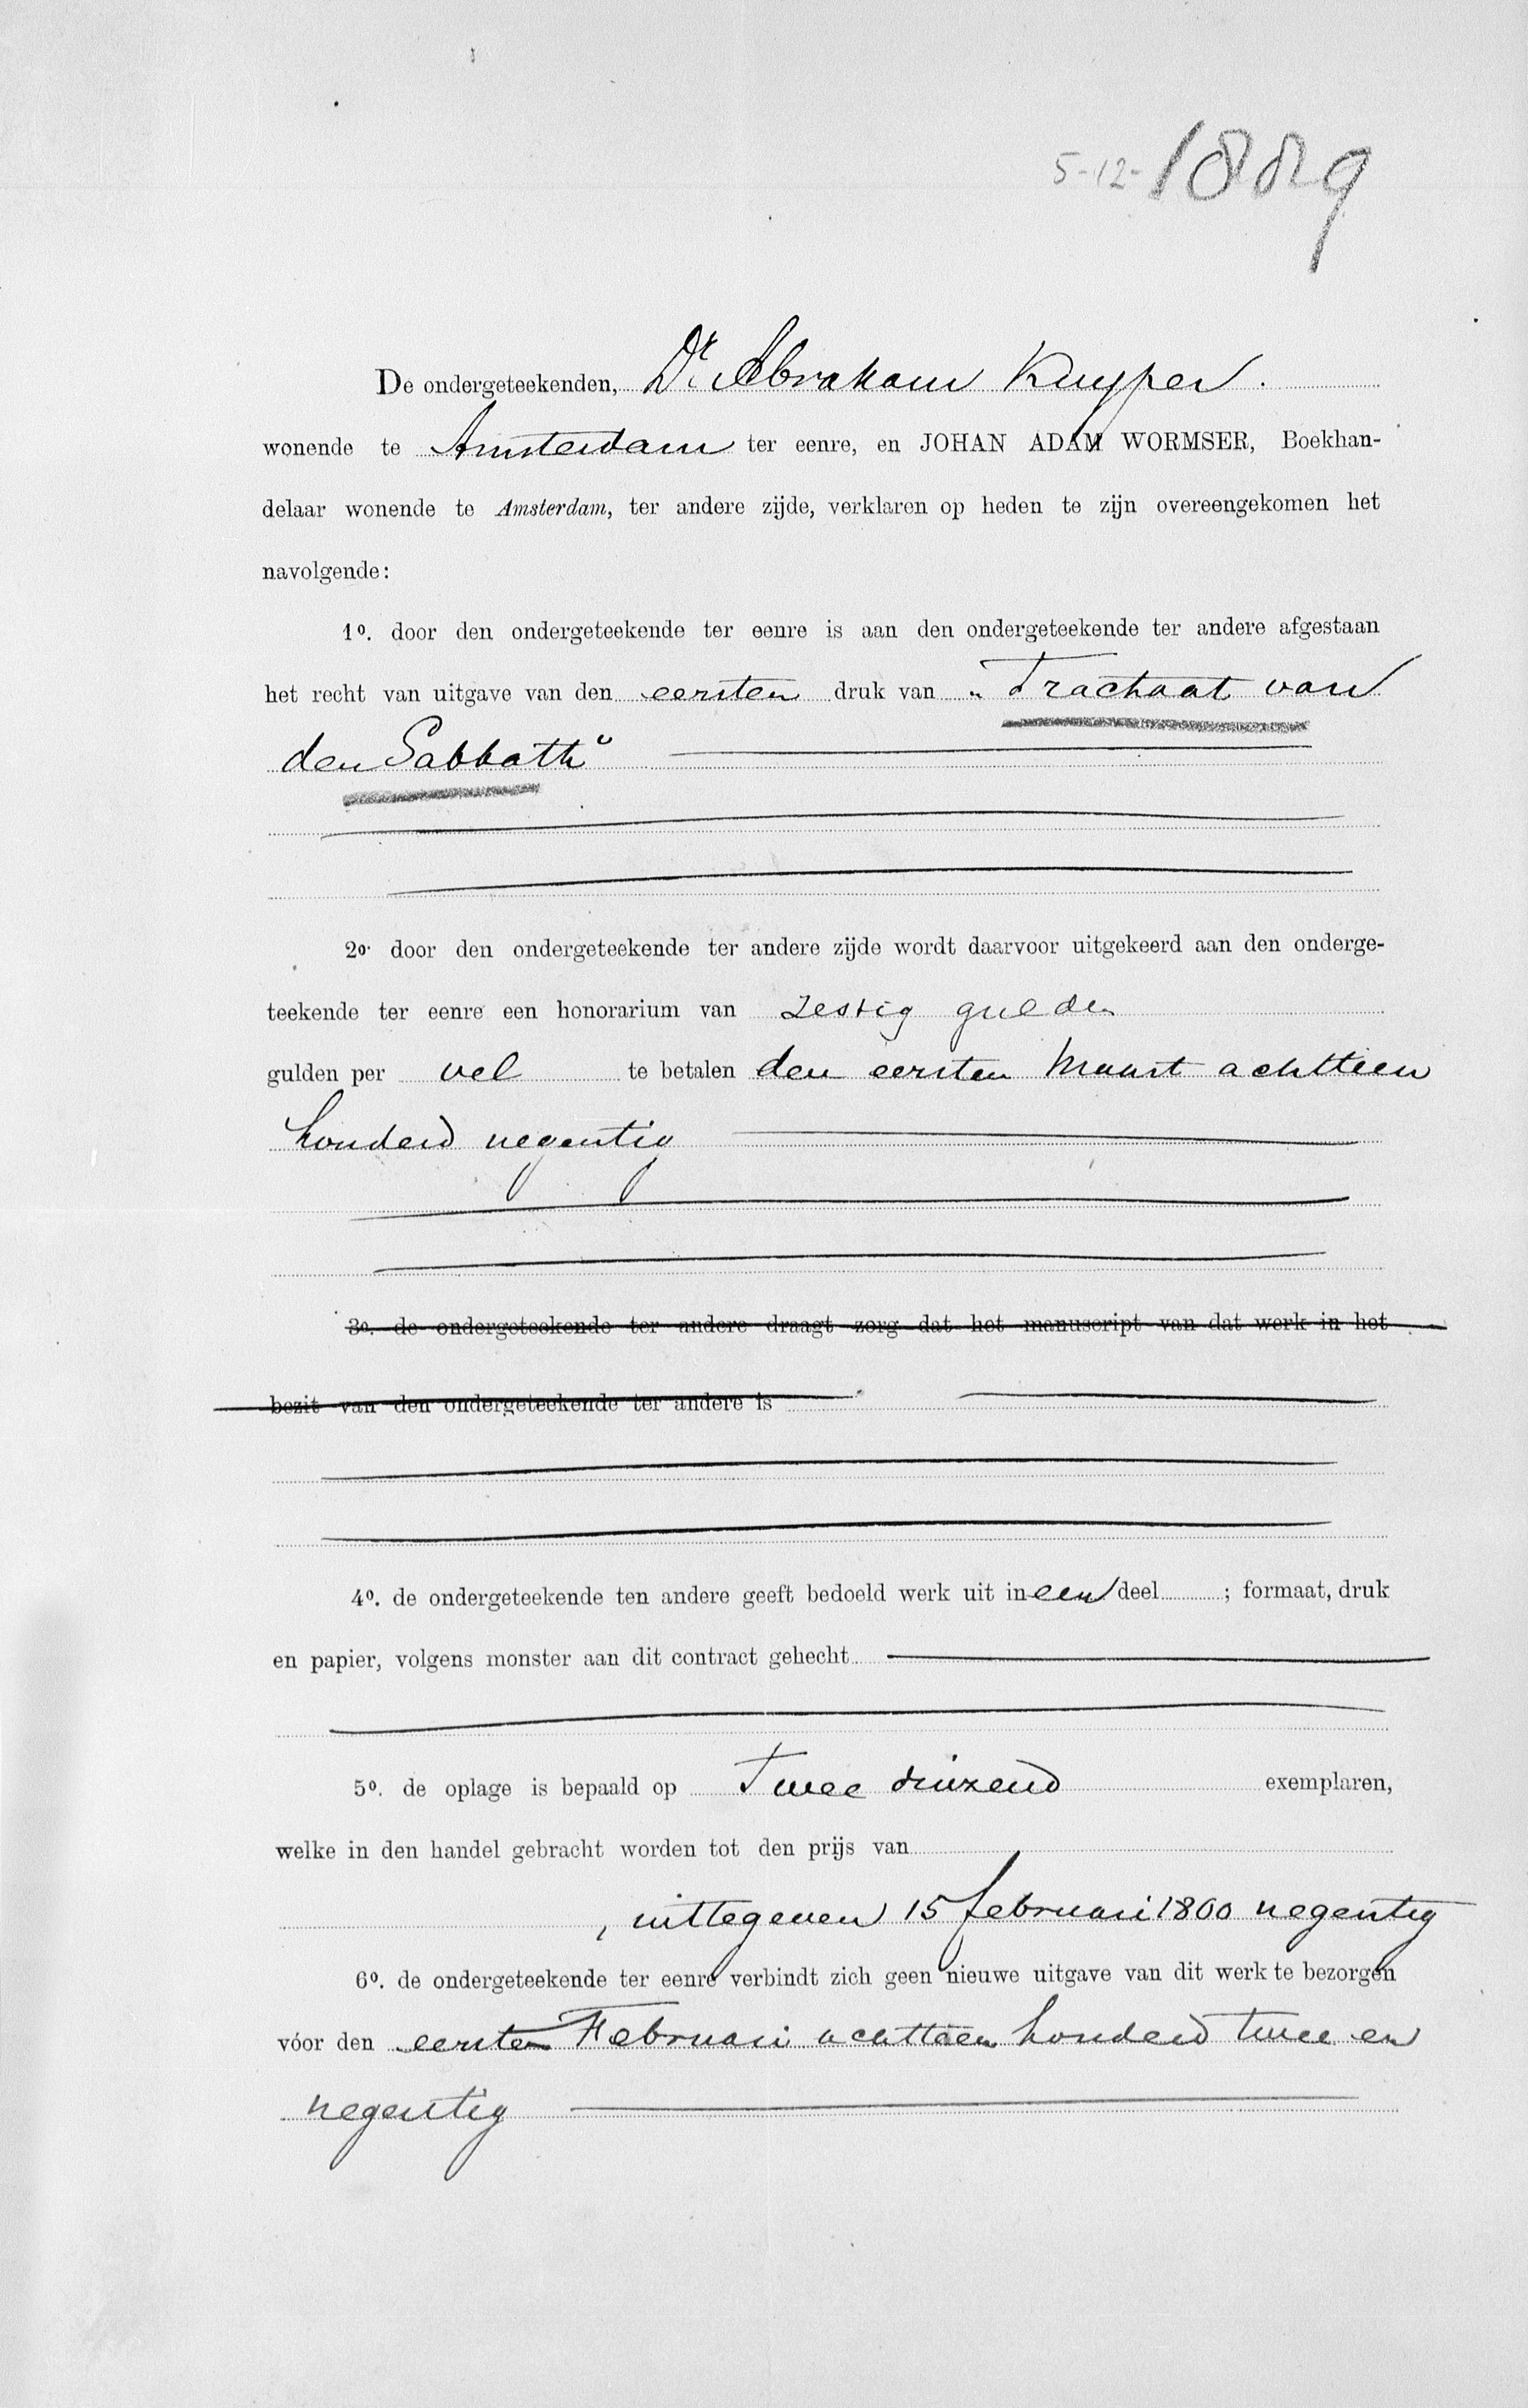 5-12-1889
De ondergeteekenden, Dr. Abraham Kuyper.
wonende te Amsterdam ter eenre, en JOHAN ADAM WORMSER, Boekhan-
delaar wonende te Amsterdam, ter andere zijde, verklaren op heden te zijn overeengekomen het
navolgende:
1o. door den ondergeteekende ter eenre is aan den ondergeteekende ter andere afgestaan
het recht van uitgave van den eersten druk van „Tractaat van
den Sabbath“
2o. door den ondergeteekende ter andere zijde wordt daarvoor uitgekeerd aan den onderge-
teekende ter eenre een honorarium van zestig gulden
gulden per vel te betalen den eersten Maart achttien
honderd negentig
3o. de ondergeteekende ter andere draagt zorg dat het manuscript van dat werk in het
bezit van den ondergeteekende ter andere is
4o. de ondergeteekende ten andere geeft bedoeld werk uit in een deel ; formaat, druk
en papier, volgens monster aan dit contract gehecht
5o. de oplage is bepaald op Twee duizend exemplaren,
welke in den handel gebracht worden tot den prijs van
, uittegeven 15 februari 1800 negentig
6o. de ondergeteekende ter eenre verbindt zich geen nieuwe uitgave van dit werk te bezorgen
vóor den eersten Februari achttien honderd twee en
negentig